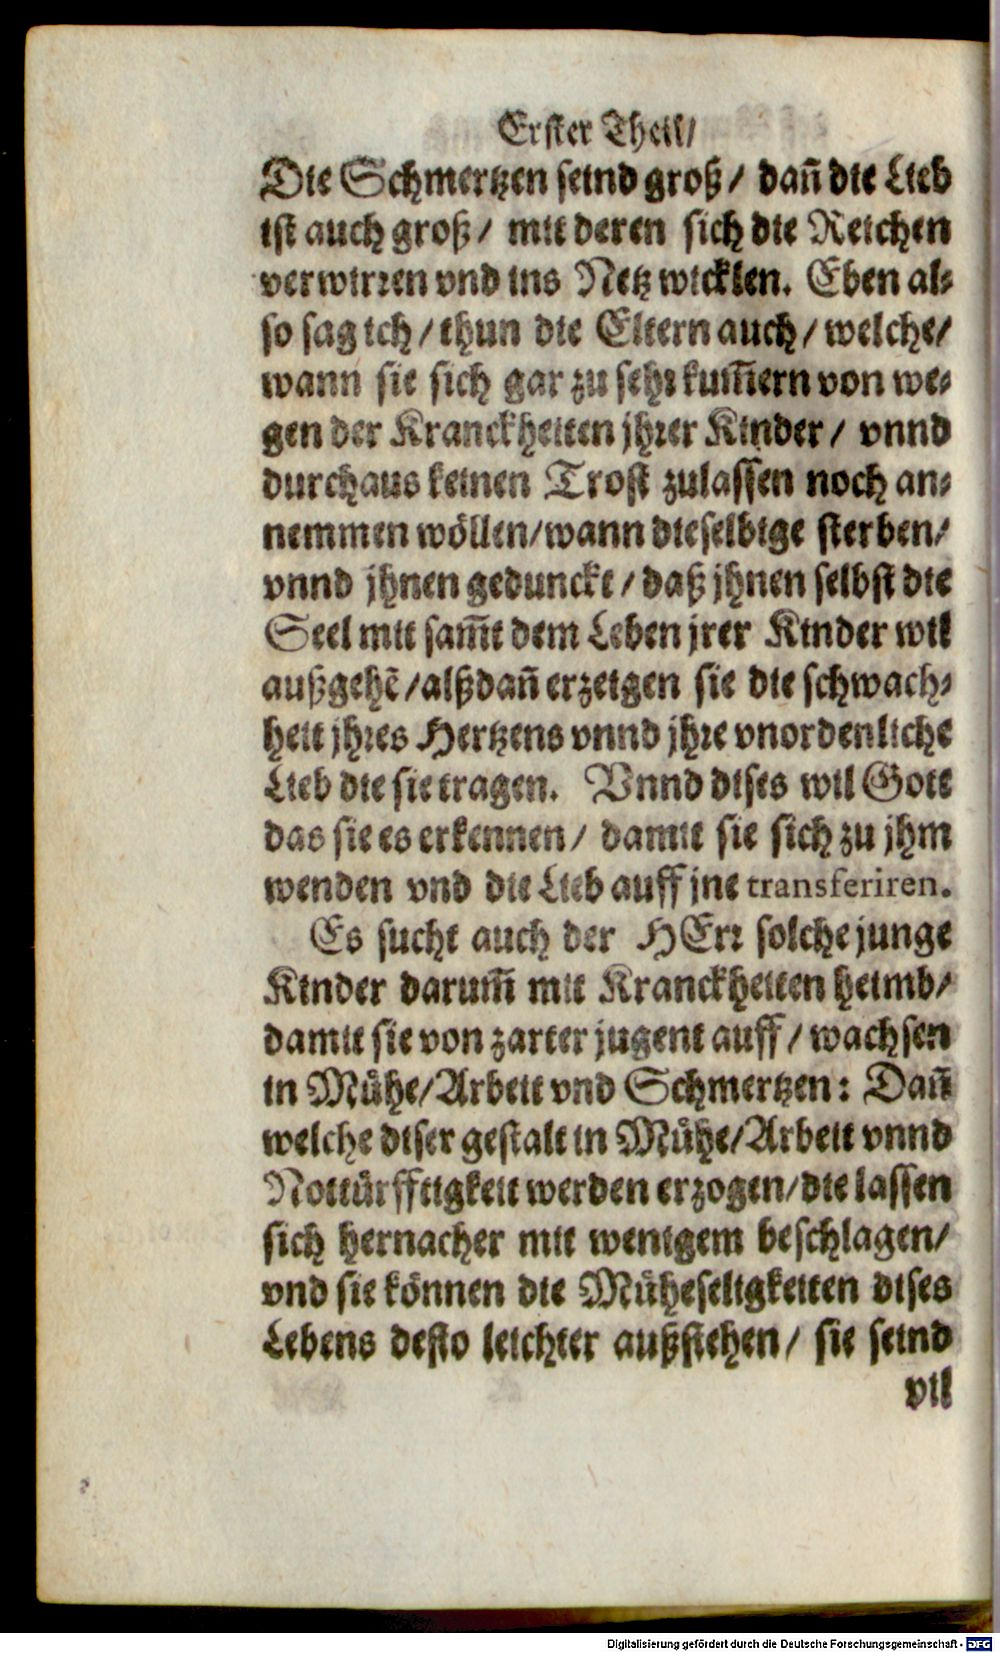 Erster Theil/
Die Schmertzen seind groß/ dañ die Lieb
ist auch groß/ mit deren sich die Reichen
verwirꝛen vnd ins Netz wicklen. Eben al⸗
so sag ich/ thun die Eltern auch/ welche/
wann sie sich gar zu sehꝛ kum̃ern von we⸗
gen der Kranckheiten jhꝛer Kinder/ vnnd
durchaus keinen Trost zulassen noch an⸗
nemmen wöllen/wann dieselbige sterben/
vnnd jhnen gedunckt/ daß jhnen selbst die
Seel mit sam̃t dem Leben jrer Kinder wil
außgehẽ/alßdañ erzeigen sie die schwach⸗
heit jhꝛes Hertzens vnnd jhꝛe vnordenliche
Lieb die sie tragen. Vnnd dises wil Gott
das sie es erkennen/ damit sie sich zu jhm
wenden vnd die Lieb auff jne transferiren.
Es sucht auch der HErꝛ solche junge
Kinder darum̃ mit Kranckheiten heimb/
damit sie von zarter jugent auff/ wachsen
in Mühe/Arbeit vnd Schmertzen: Dañ
welche diser gestalt in Mühe/Arbeit vnnd
Nottürfftigkeit werden erzogen/die lassen
sich hernacher mit wenigem beschlagen/
vnd sie können die Müheseligkeiten dises
Lebens desto leichter außstehen/ sie seind
vil
Digitalisierung gefördert durch die Deutsche Forschungsgemeinschaft - DFG